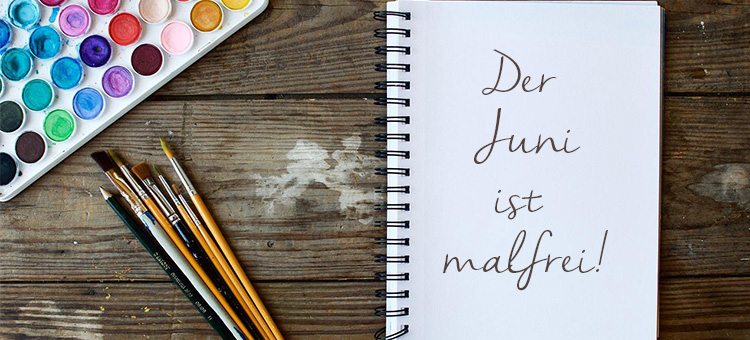 Der
Juni
ist
malfrei!